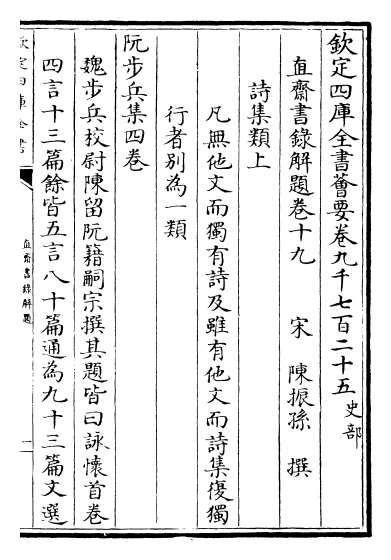 欽定四庫全書薈要卷九千七百二十五史部
直齋書錄解題卷十九　宋　陳振孫　撰
詩集類上
凡無他文而獨有詩及雖有他文而詩集復獨
行者别為一類
阮步兵集四卷
魏步兵校尉陳留阮籍嗣宗撰其題皆曰詠懷首卷
四言十三篇餘皆五言八十篇通為九十三篇文選
欽定四庫全書
直齋書錄解題